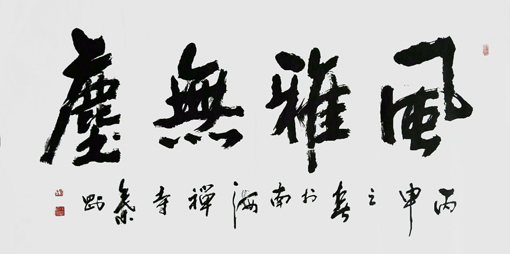 風雅無塵
丙申之春於南海禅寺秦